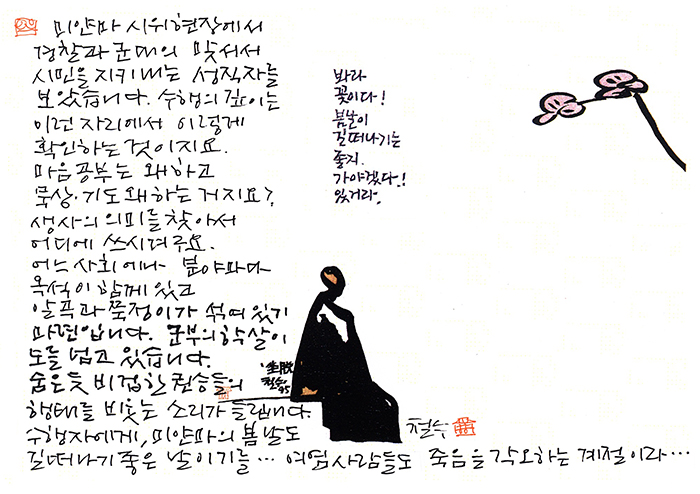 미얀마 시위현장에서
경찰과 군대의 맞서서
시민을 지키내는 성직자를
보았습니다. 수행의 깊이는
이런 자리에서 이렇게
확인하는 것이지요.
마음공부는 왜하고
묵상·기도 왜하는 거지요?
생사의 의미를 찾아서
어디에 쓰시려구요.
어느 사회에나 분야마다
옥석이 함께 있고
알곡과 쭉정이가 섞여 있기
마련입니다. 군부의 학살이
도를 넘고 있습니다.
숨은듯 비겁한 권승들의
행태를 비웃는 소리가 들립니다.
수행자에게, 미얀마의 봄날도
길떠나기 좋은 날이기를… 여염사람들도 죽음을 각오하는 계절이라…
봐라
꽃이다!
봄날이
길떠나기는
좋지.
가야겠다.!
있거라.
坐脫
철수 95
철수